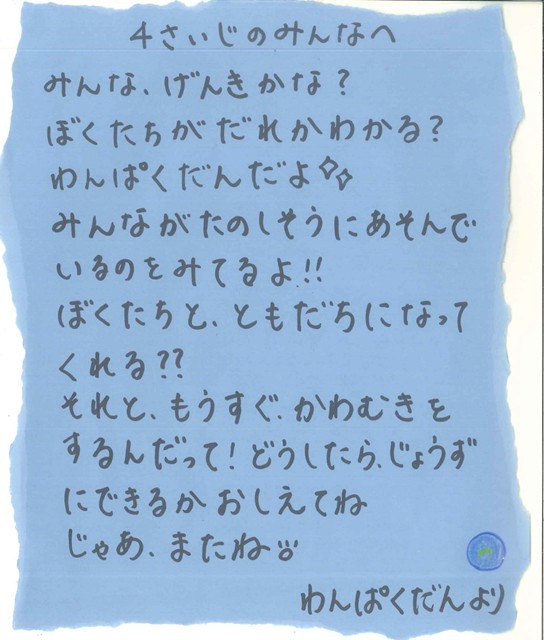 4さいじのみんなへ
みんな、げんきかな？
ぼくたちがだれかわかる？
わんぱくだんだよ
みんながたのしそうにあそんで
いるのをみてるよ!!
ぼくたちと、ともだちになって
くれる??
それと、もうすぐ、かわむきを
するんだって！どうしたら、じょうず
にできるかおしえてね
じゃあ、またね
わんぱくだんより